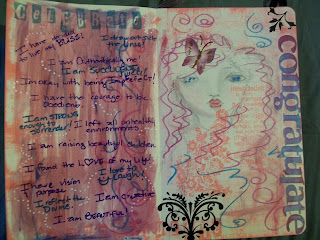 CELEBRATE
I have decided to live my BLISS!
I draw outside the lines!
I am Outrageously me!
I am Succulent
I'm okay with being Imperfect!
I have the courage to be
I am strong enough to surrender!
I left all unhealthy environments
I am raising beautiful children
I found the LOVE of my life!
I have vision purpose
I love to laugh!
I reflect the Divine.
I am creative
I am BEAUTIFUL!
congratulate